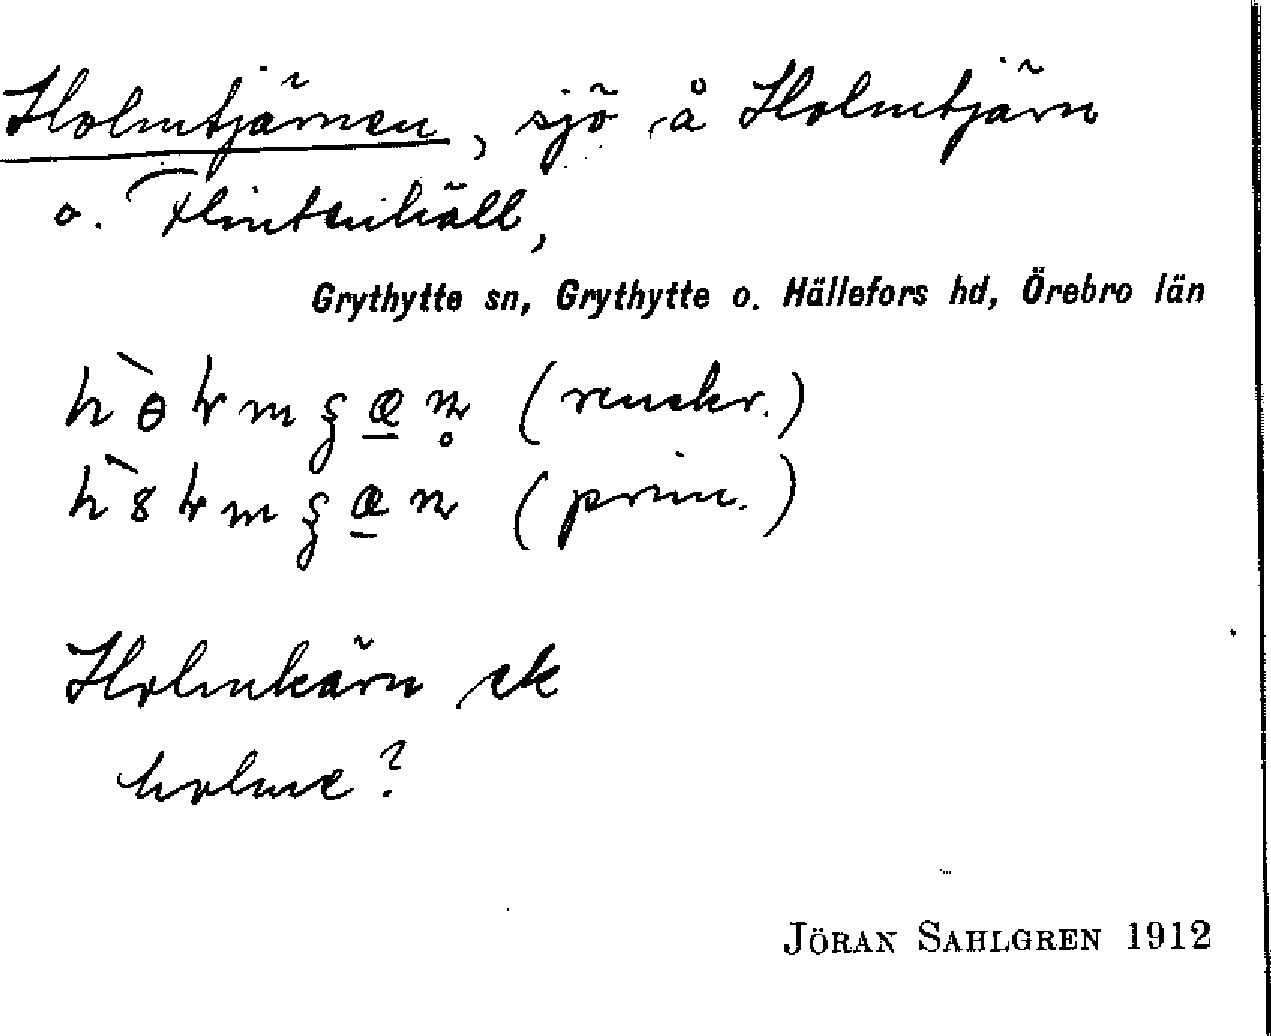 Holmtjärnen, sjö, å Holmtjärn
o. Flintenhäll,
Grythytte sn, Grythytte o. Hällefors hd, Örebro län
(renskr.)
(prim.)
Holmkärn ek
holme?
JÖRAN SAHLGREN 1912